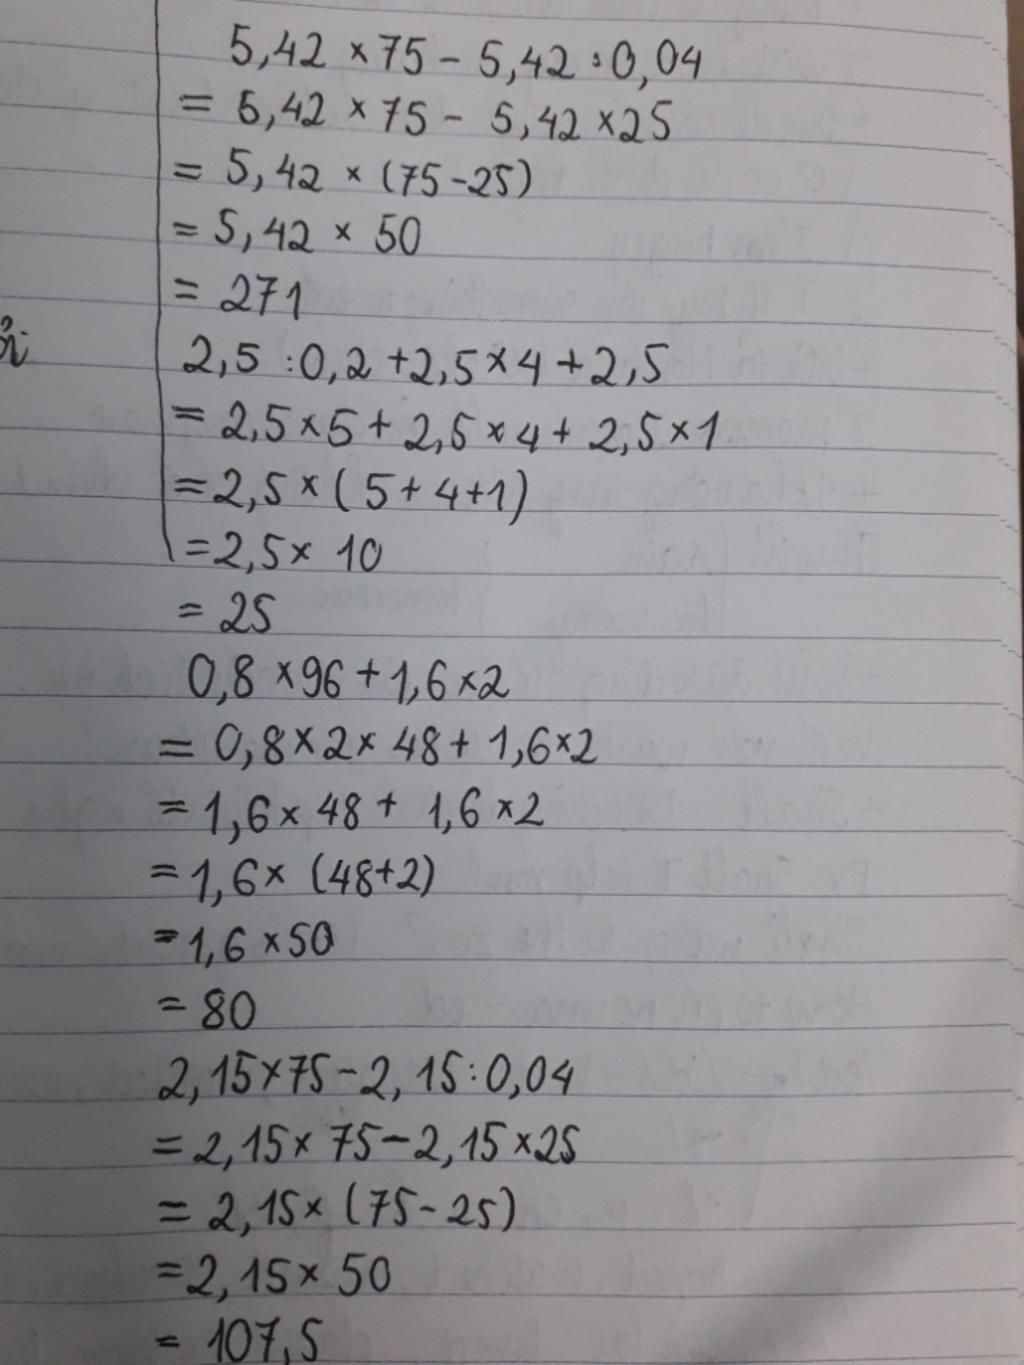 5,42 × 75 - 5,42 : 0,04
= 5,42 × 75 - 5,42 × 25
= 5,42 × (75 - 25)
= 5,42 × 50
= 271
2,5 : 0,2 + 2,5 × 4 + 2,5
= 2,5 × 5 + 2,5 × 4 + 2,5 × 1
= 2,5 × ( 5 + 4 + 1)
= 2,5 × 10
= 25
0,8 × 96 + 1,6 × 2
= 0,8 × 2 × 48 + 1,6 × 2
= 1,6 × 48 + 1,6 × 2
= 1,6 × (48 + 2)
= 1,6 × 50
= 80
2,15 × 75 - 2,15 : 0,04
= 2,15 × 75 - 2,15 × 25
= 2,15 × (75 - 25)
= 2,15 × 50
= 107,5